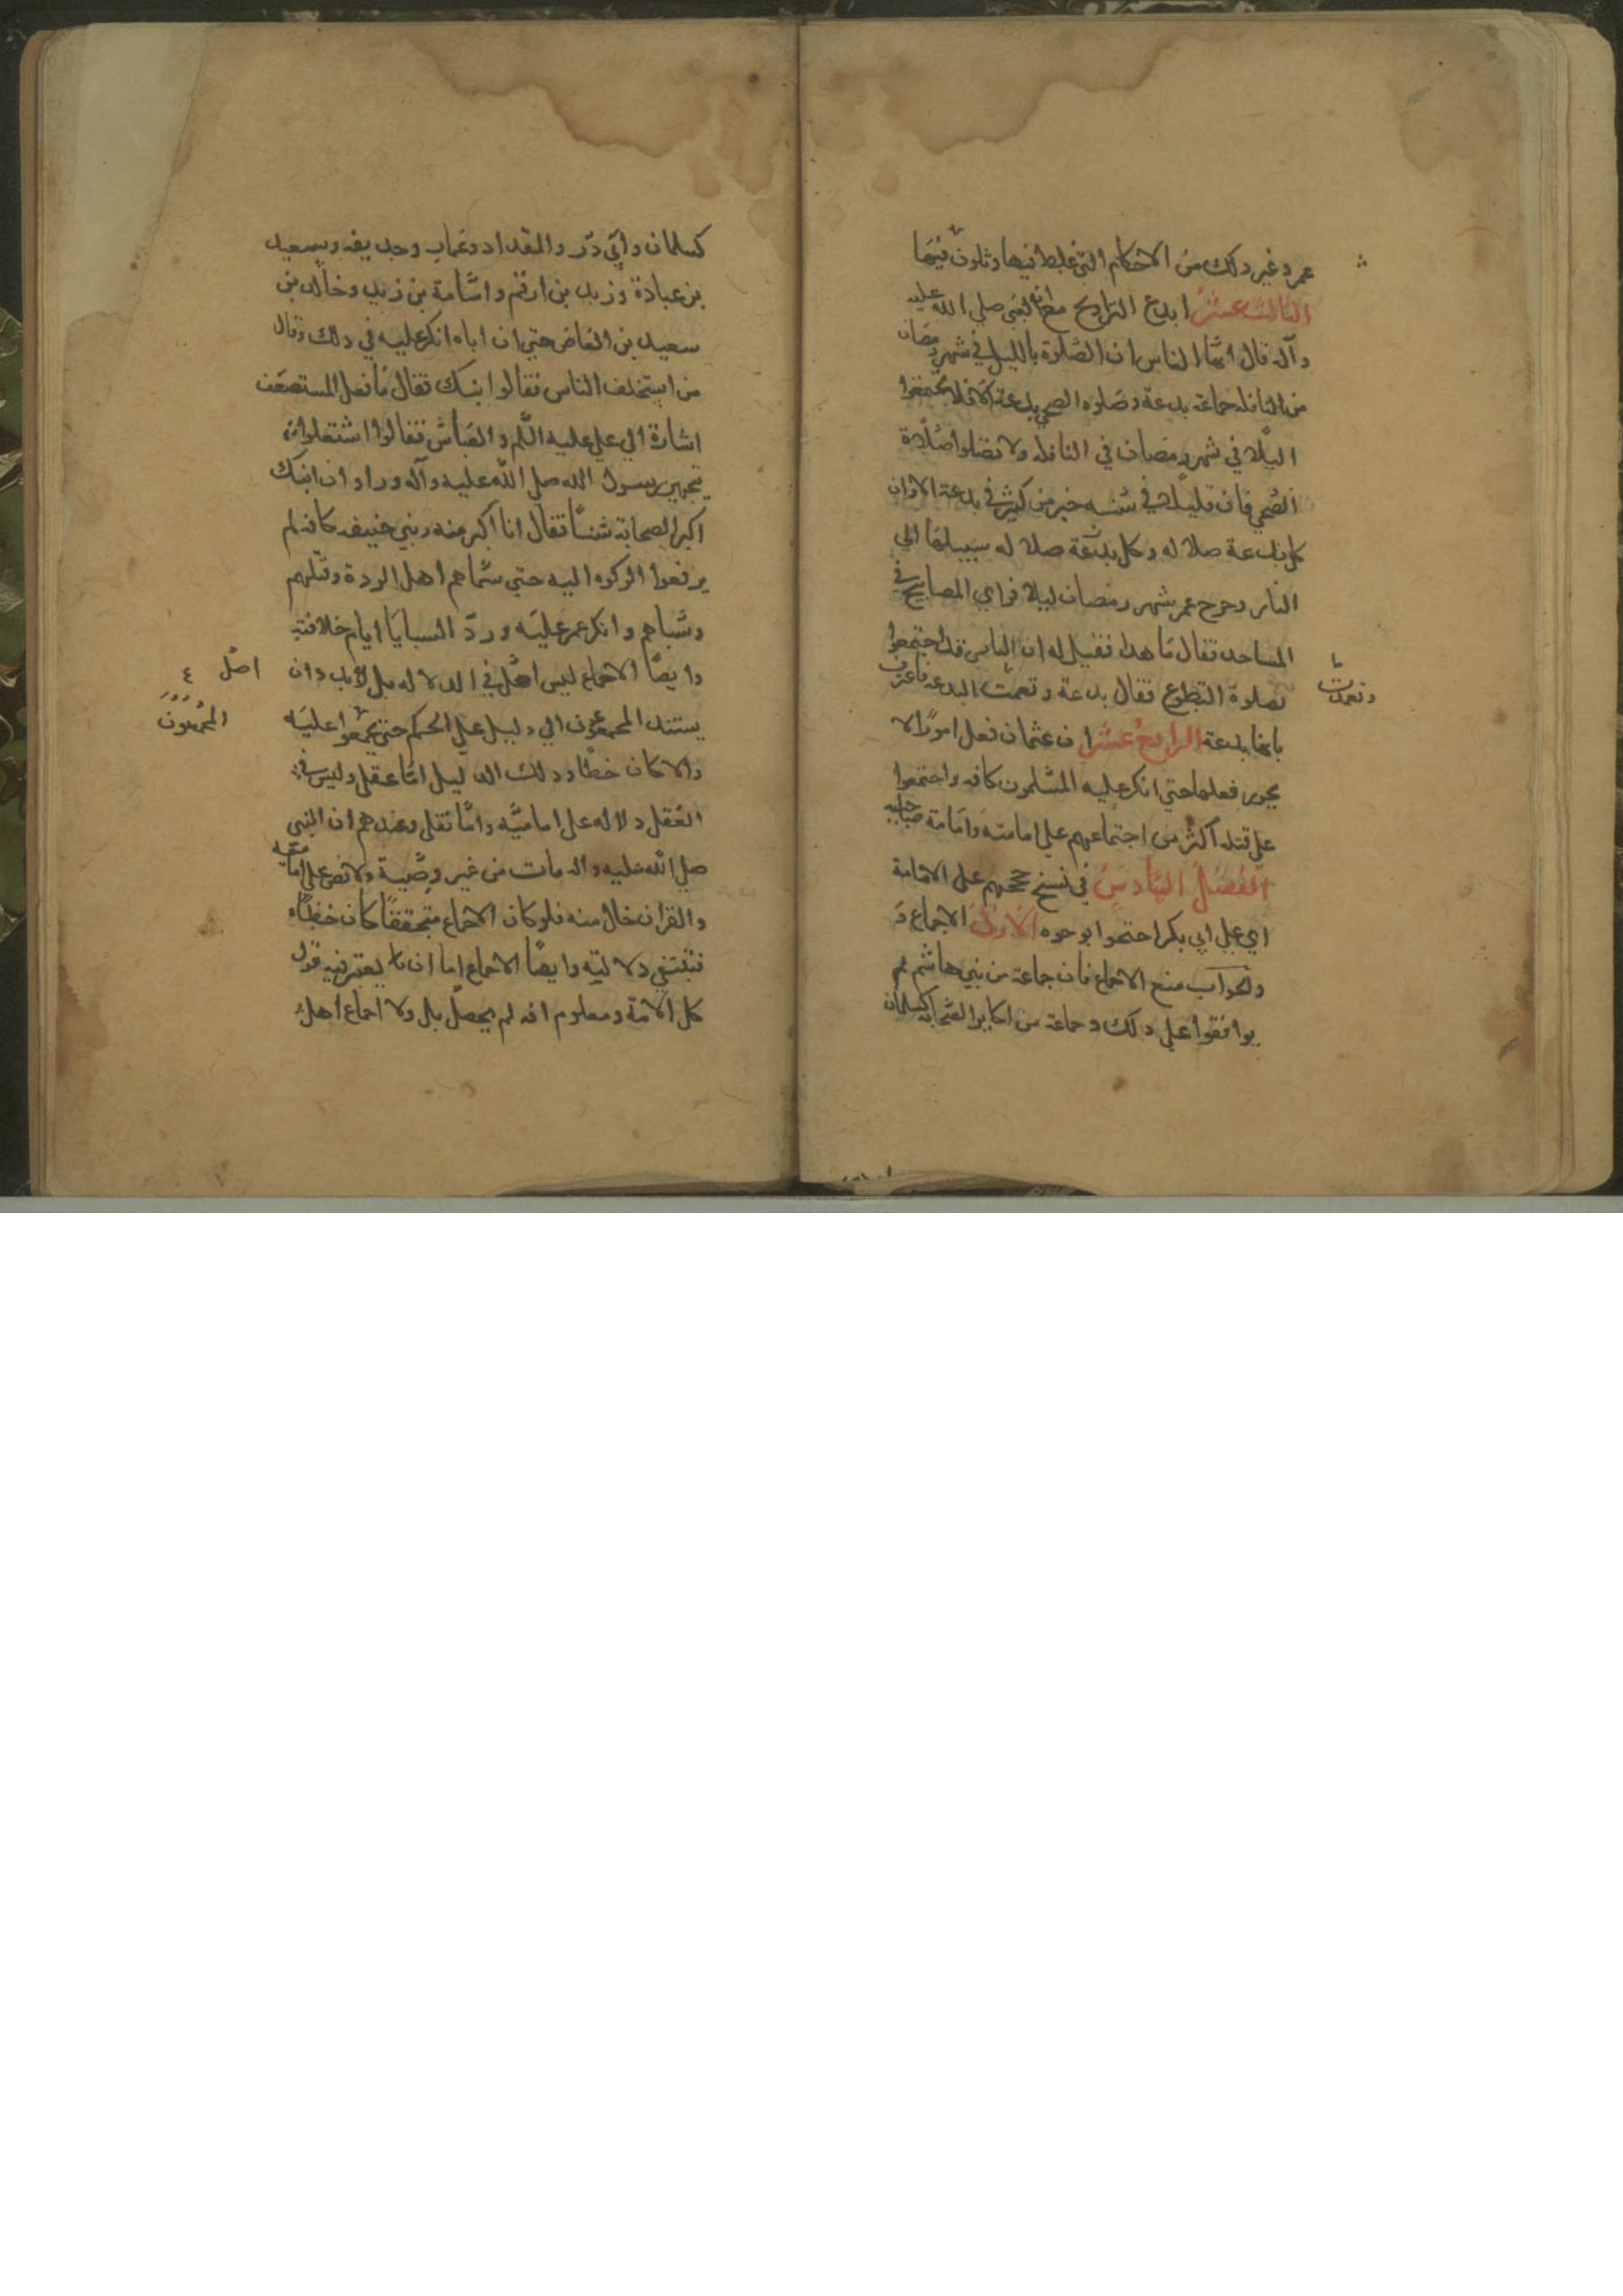 عمر وغير ذلك من الاحكام التي غلط فيها وتلون فيها
الثالث عشر ابدع التراويح مع ان النبي صلي الله عليه
وآله قال ايها الناس ان الصلوة بالليل في شهر رمضان
من النافلة جماعة بدعة وصلوة الضحي بدعة الا فلا تجتمعوا
ليلا في شهر رمضان في النافلة ولا تصلوا صلاة
الضحي فان قليلا في سنة خير من كثير في بدعة الا وان
كل بدعة ضلالة وكل ضلالة سبيلها الي
النار وخرج عمر شهر رمضان ليلا فراي المصابيح في
المساجد فقال ما هذا فقيل له ان الناس قد اجتمعوا
لصلوة التطوع فقال بدعة ونعمت البدعة فاعترف
ونعمت
بانها بدعة الرابع عشر ان عثمان فعل امورا لا
يجوز فعلها حتي انكر عليه المسلمون كافة واجتمعوا
علي قتله اكثر من اجتماعهم علي امامته وامامة صاحبيه
الفصل السادس في نسخ حججهم علي الامامة
اي علي ابي بكر احتجوا بوجوه الاول الاجماع
والجواب منع الاجماع فان جماعة من بني هاشم لم
يوافقوا علي ذلك وجماعة من اكابر الصحابة كسلمان
كسلمان وابي ذر والمقداد وعمار وحذيفة وسعيد
بن عبادة وزيد بن ارقم واسامة بن زيد وخالد بن
سعيد بن العاص حتي ان اباه انكر عليه في ذلك وقال
من استخلف الناس فقالوا ابنك فقال ما فعل المستضعفان
اشارة الي علي عليه السلم والعباس فقالوا اشتغلوا
بتجهيز رسول الله صلي الله عليه وآله وراوا ان ابنك
اكبر الصحابة سنا فقال انا اكبر منه وبني حنيفة كافة لم
يرفعوا الزكوة اليه حتي سماهم اهل الردة وقتلهم
وسباهم وانكر عمر عليه ورد السبايا ايام خلافته
وايضا الاجماع ليس اصل في الدلالة بل لابد وان
اصل ٤
يستند المجمعون الي دليل علي الحكم حتي يجمعوا عليه
المجمعون
والا كان خطا وذلك الدليل اما عقلي وليس في
العقل دلالة علي امامته واما نقلي وعندهم ان النبي
صلي الله عليه واله مات من غير وصية ولا نص علي امامته
والقران خال منه فلو كان الاجماع متحققا كان خطاء
فتنتفي دلالته وايضا الاجماع اما ان يعتبر فيه قول
كل الامة ومعلوم انه لم يحصل بل ولا اجماع اهل